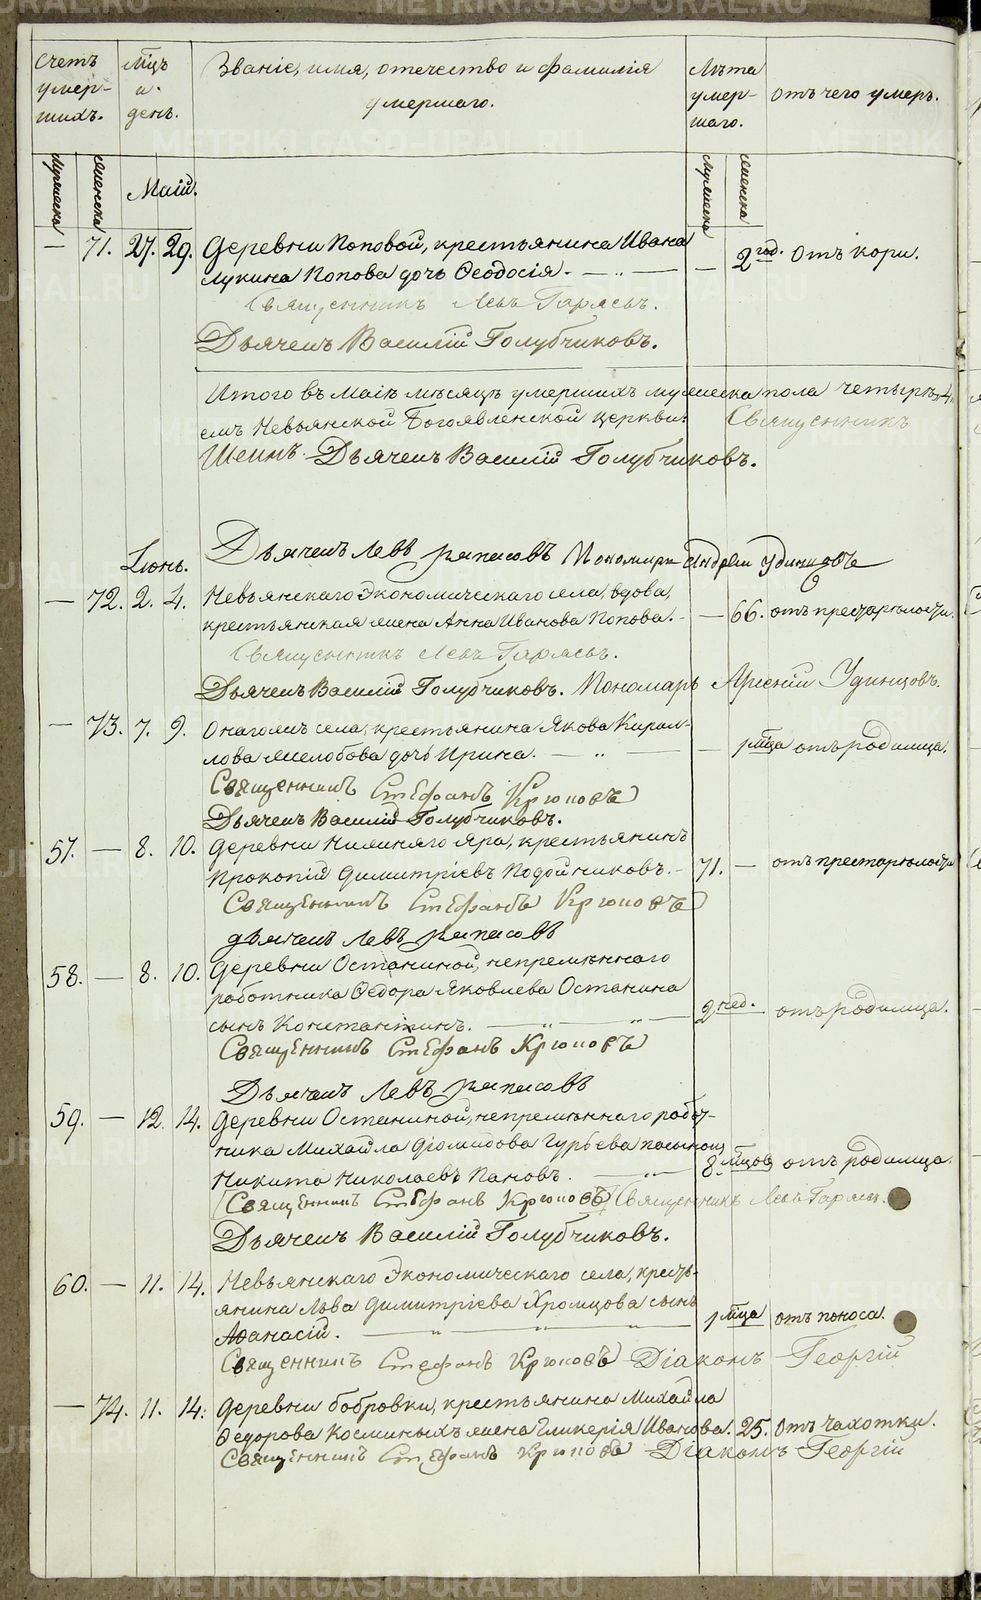 Счетъ умер-шихъ.
Мѣцъ и день.
Званіе, имя, отечество и фамилія умершаго.
Лѣта умер-шаго.
отъ чего умеръ.
мужеска женска
Маій.
мужеска женска
— 71. 27. 29. Деревни Поповой, крестьянина Ивана
Лукина Попова дочь Ѳеодосія. — „ — — 2 год. отъ кори.
Священникъ Левъ Гаряевъ.
Дьячекъ Василій Голубчиковъ.
Итого въ Маіѣ мѣсяцѣ умершихъ мужеска пола четыр 4
Невьянской Богоявленской церкви. Священникъ
Шеинъ. Дьячекъ Василій Голубчиковъ.
Дьячекъ Левъ Пономарь Андрей Удинцовъ
Іюнь.
— 72. 2. 4. Невьянскаго Экономическаго села, вдова,
крестьянская жена Анна Иванова Попова. — 66. отъ престарѣлости.
Священникъ Левъ Гаряевъ.
Дьячекъ Василій Голубчиковъ. Пономарь Арсеній Удинцовъ.
— 73. 7. 9. Онагожъ села, крестьянина Якова Кирил-
лова дочь Ирина. — „ — 1 мѣца отъ родимца.
Священникъ Стефанъ Крюковъ
Дьячекъ Василій Голубчиковъ.
57. — 8. 10. Деревни Нижняго Яра, крестьянинъ
Прокопій Димитріевъ Подойниковъ. — 71. — отъ престарѣлости
Священникъ Стефанъ Крюковъ
Дьячекъ Левъ
58. — 8. 10. Деревни Останиной, непремѣннаго
работника Ѳедора Яковлева Останина
сынъ Константинъ. — „ „ — 2 нед. — отъ родимца.
Священникъ Стефанъ Крюковъ
Дьячекъ Левъ
59. — 12. 14. Деревни Останиной, непремѣннаго работ-
ника Михайла Діомидова Гурьева пасынокъ
Никита Николаевъ Пановъ. — „ — 8 мѣцов отъ родимца.
Священникъ Стефанъ Крюковъ Священникъ Левъ Гаряев.
Дьячекъ Василій Голубчиковъ.
60. — 11. 14. Невьянскаго Экономическаго села, кресть-
янина Льва Димитріева Хромцова сынъ
Аѳанасій. — „ „ „ 1 мѣца отъ поноса.
Священникъ Стефанъ Крюковъ Діаконъ Георгій
— 74. 11. 14. Деревни Бобровки, крестьянина Михайла
Ѳедорова Косминыхъ жена Гликерія Иванова. 25. отъ чахотки.
Священникъ Стефанъ Крюковъ Діаконъ Георгій
METRIKI.GASO-URAL.RU